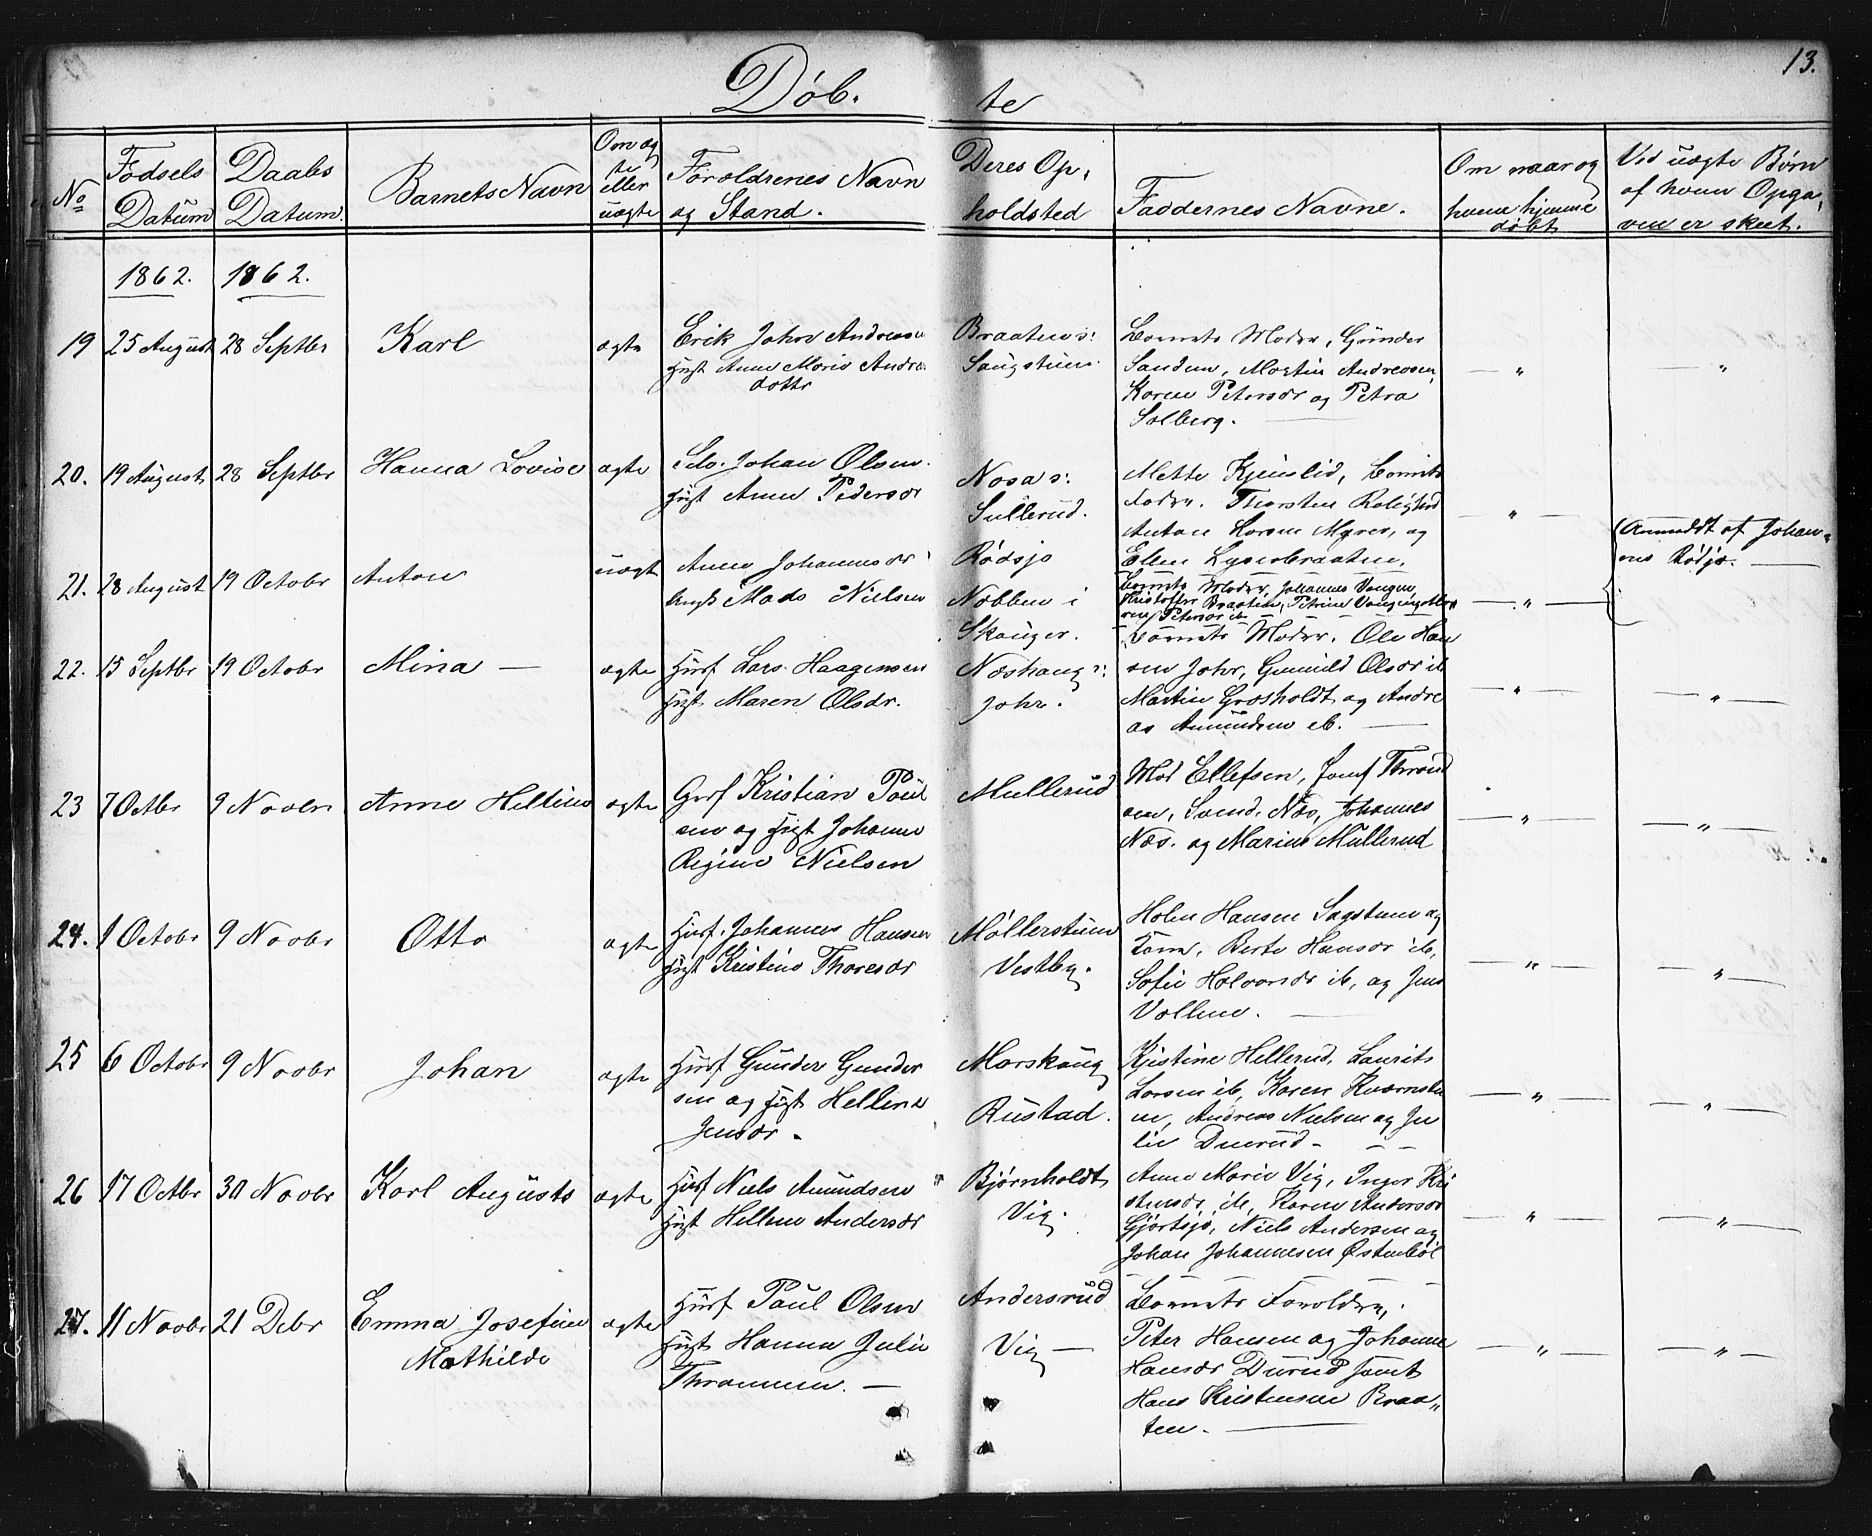 13.
Døb. te
No
Fødsels Datum
Daabs Datum.
Barnets Navn
Om æg te eller uægte
Forældrenes Navn og Stand.
Deres Op, holdsted
Faddernes Navne.
Om naar og hvem hjemme døbt
Ved uægte Børn af hvem Opga, ven er skeet.
1862. 1862.
19 25 August 28 Septbr Karl ægte
Erik Johr Andreasen
Anne Marie Andre
dottr
Braaten s:
Saugstuen.
Barnets Moder, Gunder
Sanden, Martin Andreasen,
Karen Petersdr og Petra
Solberg.
20. 19 August 28 Septbr Hanna Lovise ægte
Selv. Johan Olsen.
Anne Pedersdr
Næsa s:
Sullerud.
Mette Kjenslid, Barnets
Fader. Thorsten
Anton Larsen Myrer, og
Elen Lysebraaten,
21. 28 August 19 Octobr Anton uægt
Anne Johannesdr
Mads Nielsen
Rødsjø
Nabben i
Skauger.
Barnets Moder, Johannes Vangen,
Kristoffer Braaten, Petrine Vangen
Petersdr ib
(Anmeldt af Johan-
nes Rødsjø.
22. 15 Septbr 19 Octobr Mina ægte
Lars Haagensen
Maren Olsdr.
Næshaug s:
Johr.
Barnets Moder. Ole Han
sen Johr, Gunnild Olsdr ib
Martin Græsholdt og Andre
as Amundsen ib.
23 7 Octbr 9 Novbr Anne Heltine ægte
Kristian Paul
sen og Johanne
Regine Nielsen
Mullerud
Mod Ellefsen, Josef Thrond
sen, Svend. Næs, Johannes
Næs. og Marius Mullerud
24. 1 Octobr 9 Novbr Otto ægte
Johannes Hansen
Kristine Thoresdr
Møllerstuen
Vestby.
Holm Hansen Sagstuen og
Kone, Berte Hansdr ib,
Sofie Halvorsdr ib, og Jens
Vollene.
25 6 Octobr 9 Novbr Johan ægte
Gunder Gunder
sen og Hellene
Jensdr.
Morskaug
Rustad.
Kristine Hellerud, Laurits
Larsen ib, Karen Kværnstu
en, Andreas Nielsen og Ju
lie Duerud
26 17 Octbr 30 Novbr Karl Augusts ægte
Niels Amundsen
Hellene Andersdr
Bjørnholdt
Vig.
Anne Marie Vig, Inger Kri
stensdr, ib, Karen Andersdr
Gjortsjø, Niels Andersen og
Johan Johannesen Østenbøl
27. 11 Novbr 21 Debr Emma Josefine ægte
Mathilde
Paul Olsen
Hanna Julie
Thronsen.
Andersrud
Vig
Barnets Forældre,
Peter Hansen og Johanne
Hansdr Durud samt
Hans Kristensen Braa„
ten.